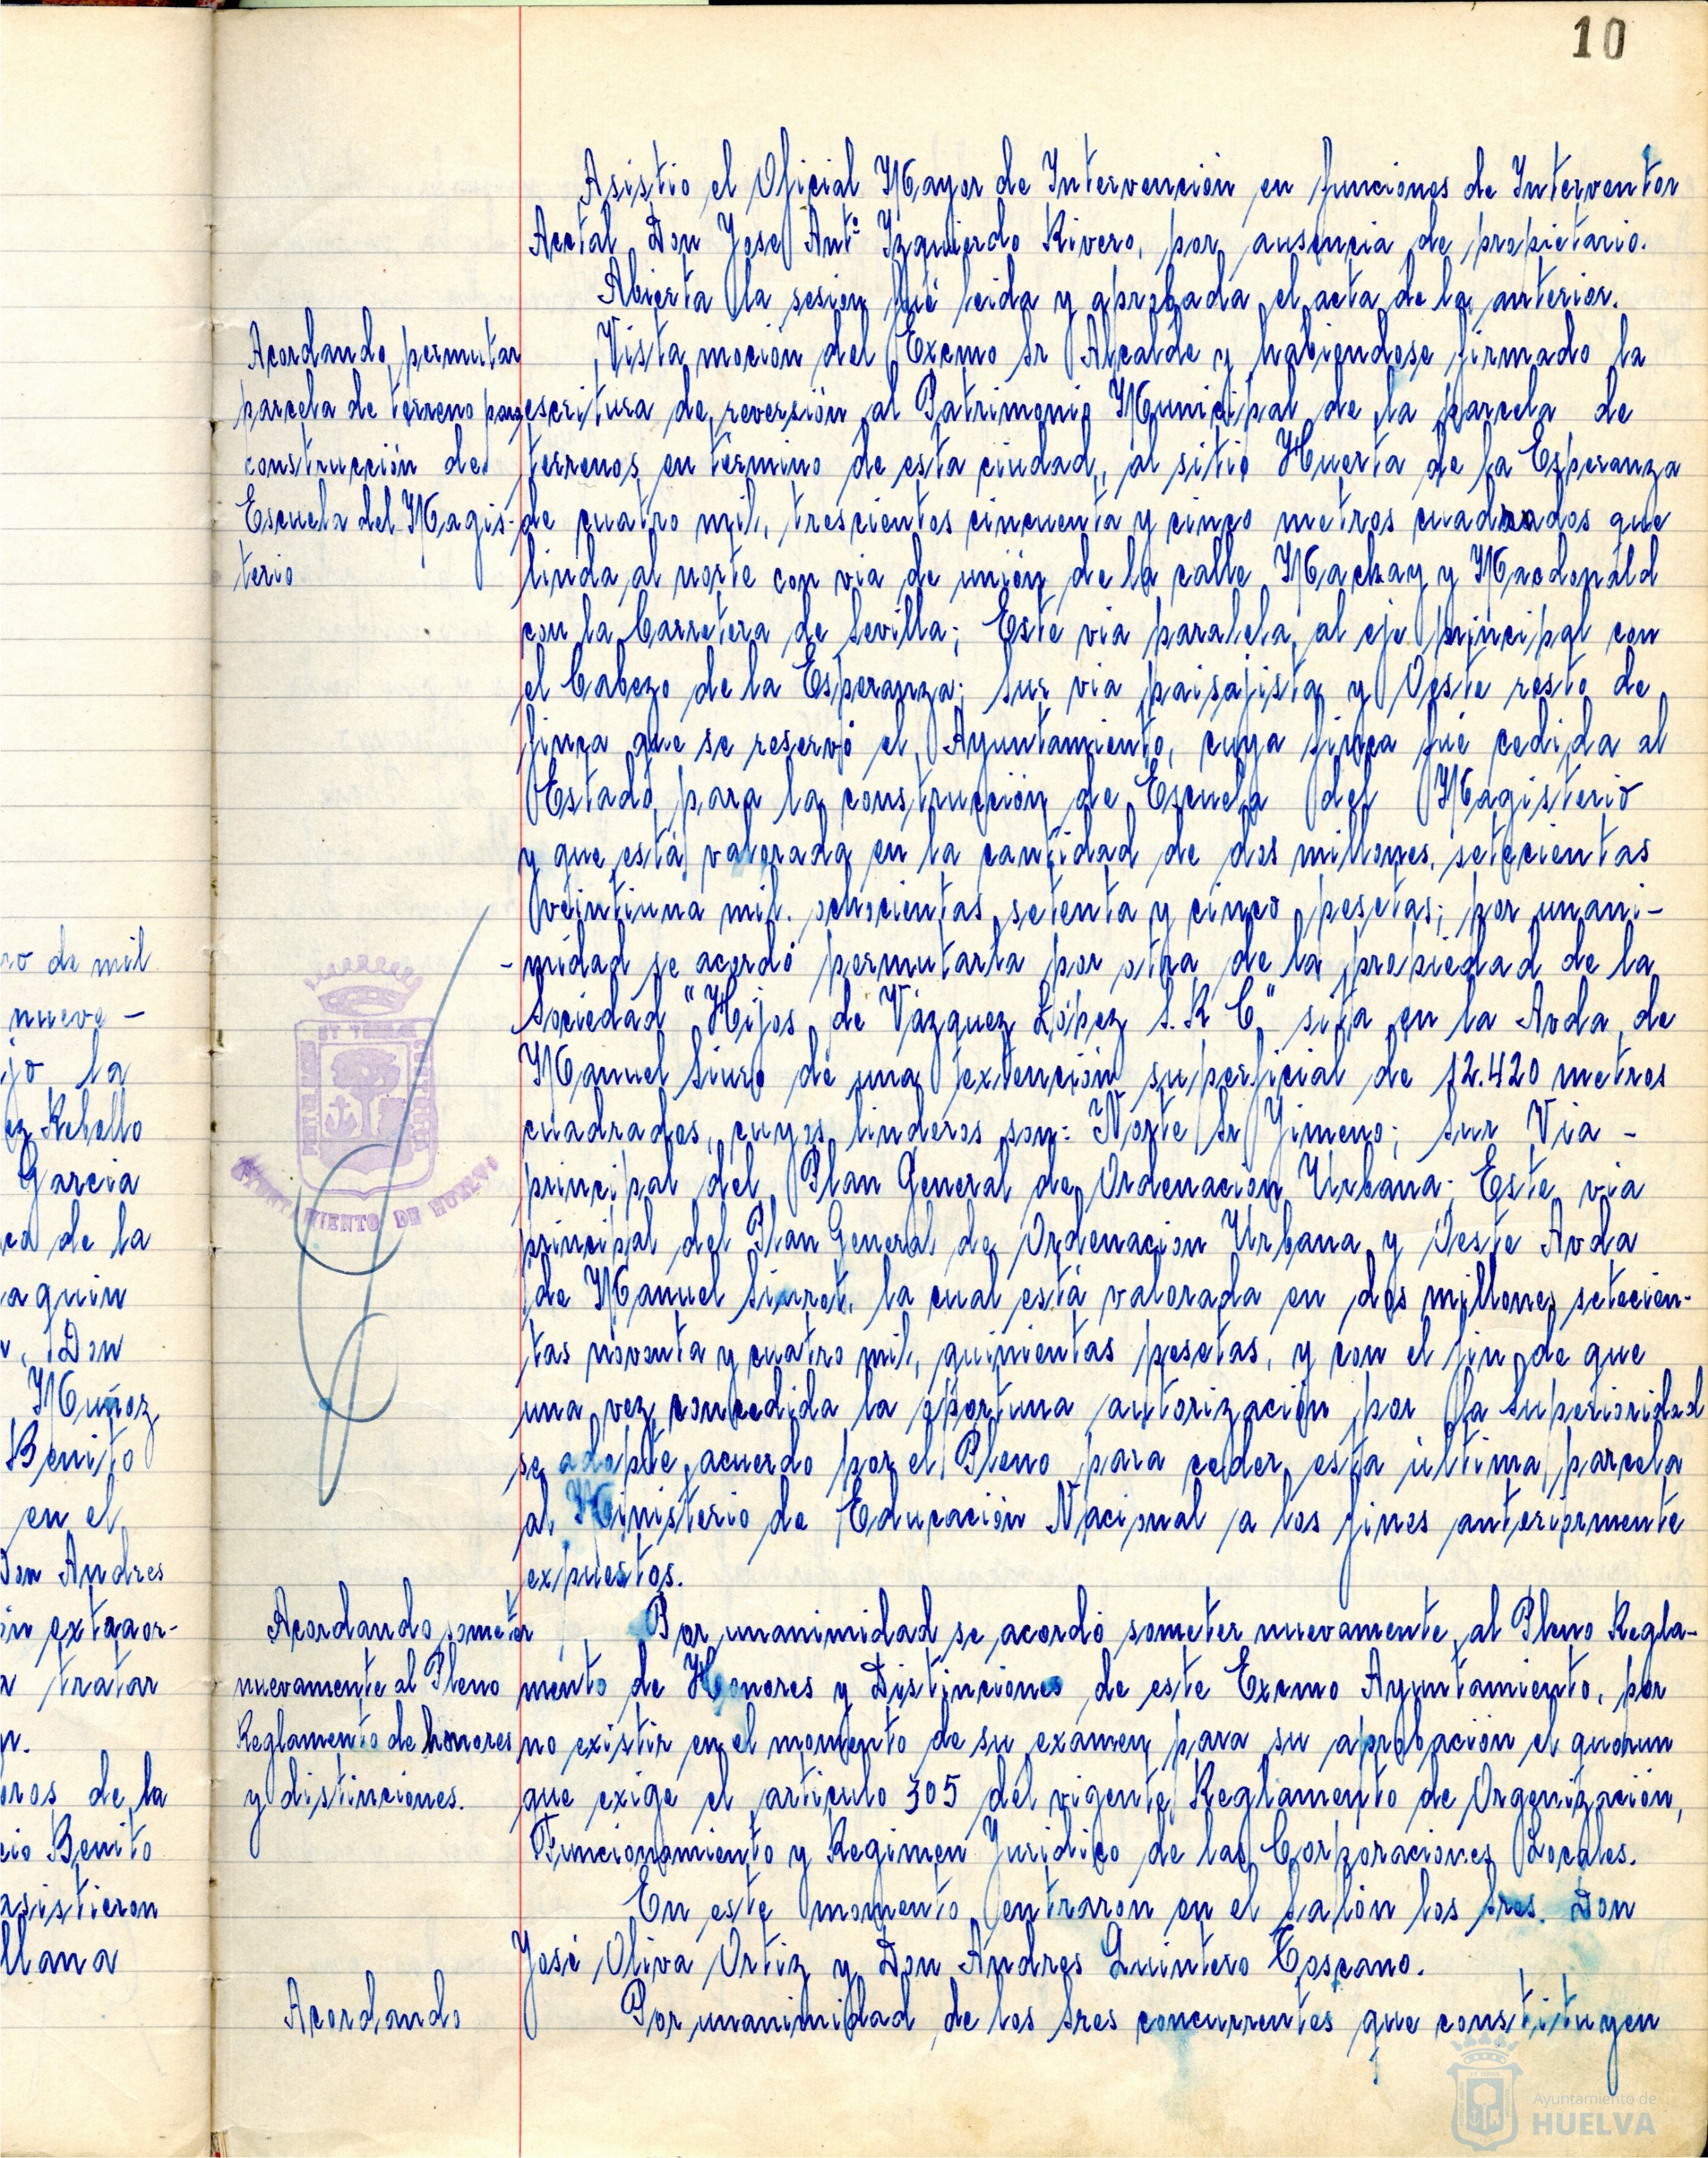 10
Asistio el Oficial Mayor de Intervención en funciones de Interventor
Acctal Don Jose Antº Izquierdo Rivero, por ausencia de propietario.
Abierta la sesion fué leida y aprobada el acta de la anterior.
Acordando permutar
parcela de terreno para
construcción de
Escuela del Magis-
terio
Vista moción del Excmo Sr Alcalde y habiendose firmado la
escritura de reversión al Patrimonio Municipal de la parcela de
terrenos en término de esta ciudad, al sitio Huerta de la Esperanza
de cuatro mil, trescientos cincuenta y cinco metros cuadrados que
linda al norte con via de unión de la calle Mackay y Macdonald
con la Carretera de Sevilla; Este via paralela al eje principal con
el Cabezo de la Esperanza; Sur via paisajista y Oeste resto de
finca que se reservó el Ayuntamiento, cuya finca fué cedida al
Estado para la construcción de Escuela del Magisterio
y que está valorada en la cantidad de dos millones, setecientas
veintiuna mil. ochocientas setenta y cinco pesetas; por unani-
-midad se acordó permutarla por otra de la propiedad de la
Sociedad "Hijos de Vázquez López S.R C" sita en la Avda de
Manuel Siuro de una extención superficial de 12.420 metros
cuadrados, cuyos linderos son: Norte Sr Jimeno; Sur Via -
principal del Plan General de Ordenación Urbana; Este via
principal del Plan General de Ordenación Urbana y Oeste Avda
de Manuel Siurot, la cual está valorada en dos millones setecien-
tas noventa y cuatro mil, quinientas pesetas, y con el fin de que
una vez concedida la oportuna autorización por la Superioridad
se adopte acuerdo por el Pleno para ceder esta última parcela
al Ministerio de Educación Nacional a los fines anteriormente
expuestos.
Acordando someter
nuevamente al Pleno
Reglamento de honores
y distinciones.
Por unanimidad se acordó someter nuevamente al Pleno Regla-
mento de Honores y Distinciones de este Excmo Ayuntamiento, por
no existir en el momento de su exámen para su aprobación el quorun
que exige el articulo 305 del vigente Reglamento de Organización,
Funcionamiento y Regimen Juridico de las Corporaciones Locales.
En este momento entraron en el Salón los Sres. Don
José Oliva Ortiz y Don Andres Quintero Toscano.
Acordando
Por unanimidad de los Sres concurrentes que constituyen
ro de mil
nueve -
jo la
ez Rebollo
Garcia
ca de la
aquin
Don
Muñoz
Benito
en el
Don Andres
ón extraor-
a tratar
n.
oros de la
cio Benito
asistieron
llana
AYUNTAMIENTO DE HUELVA
Ayuntamiento de
HUELVA